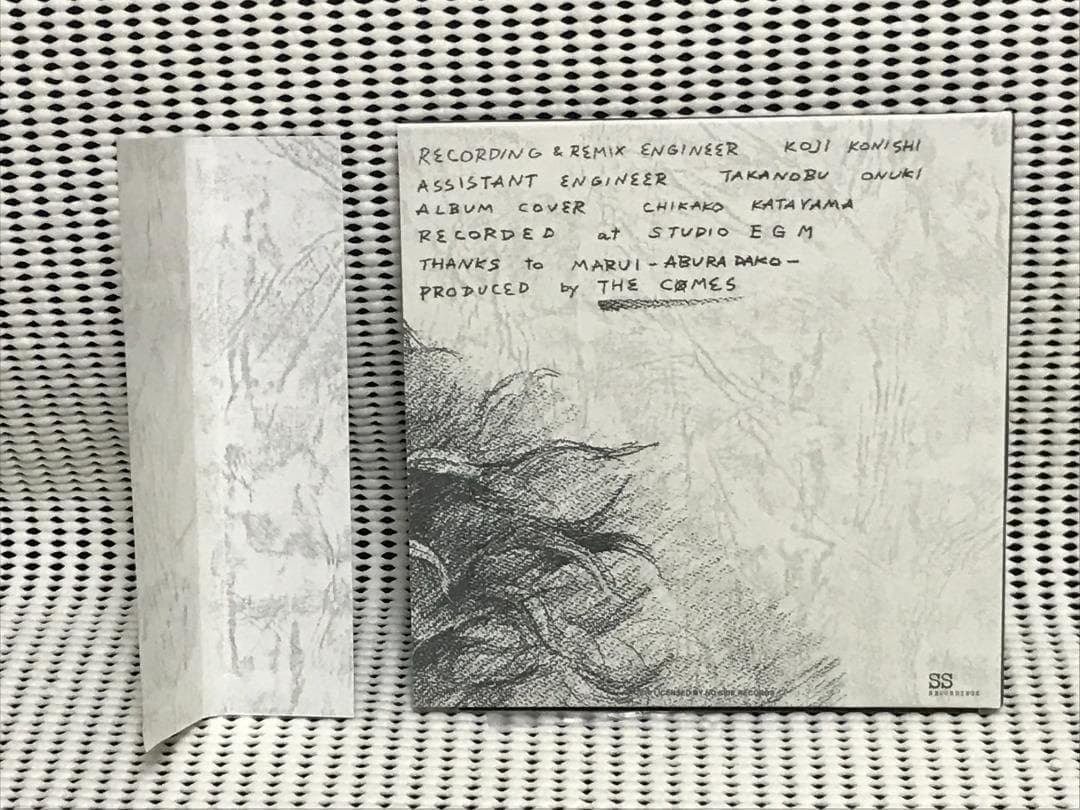 RECORDING & REMIX ENGINEER KOJI KONISHI
ASSISTANT ENGINEER TAKANOBU ONUKI
ALBUM COVER CHIKAKO KATAYAMA
RECORDED at STUDIO EGM
THANKS to MARUI -ABURADAKO-
PRODUCED by THE COMES
LICENSED BY NO SIDE RECORDS
SS
RECORDINGS